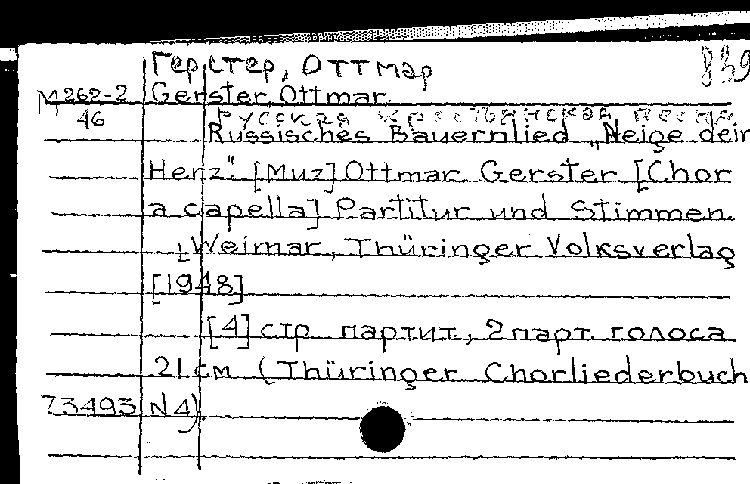 Герстер, Оттмар 839
М 262-2 Gerster, Ottmar
46 Русская крестьянская песня
Russisches Bauernlied „Neige dein
Herz“. [Muz] Ottmar Gerster [Chor
a capella] Partitur und Stimmen
Weimar, Thüringer Volksverlag
[1948]
[4] стр партит, 2 парт. голоса
21 см (Thüringer Chorliederbuch
73493 N 4).